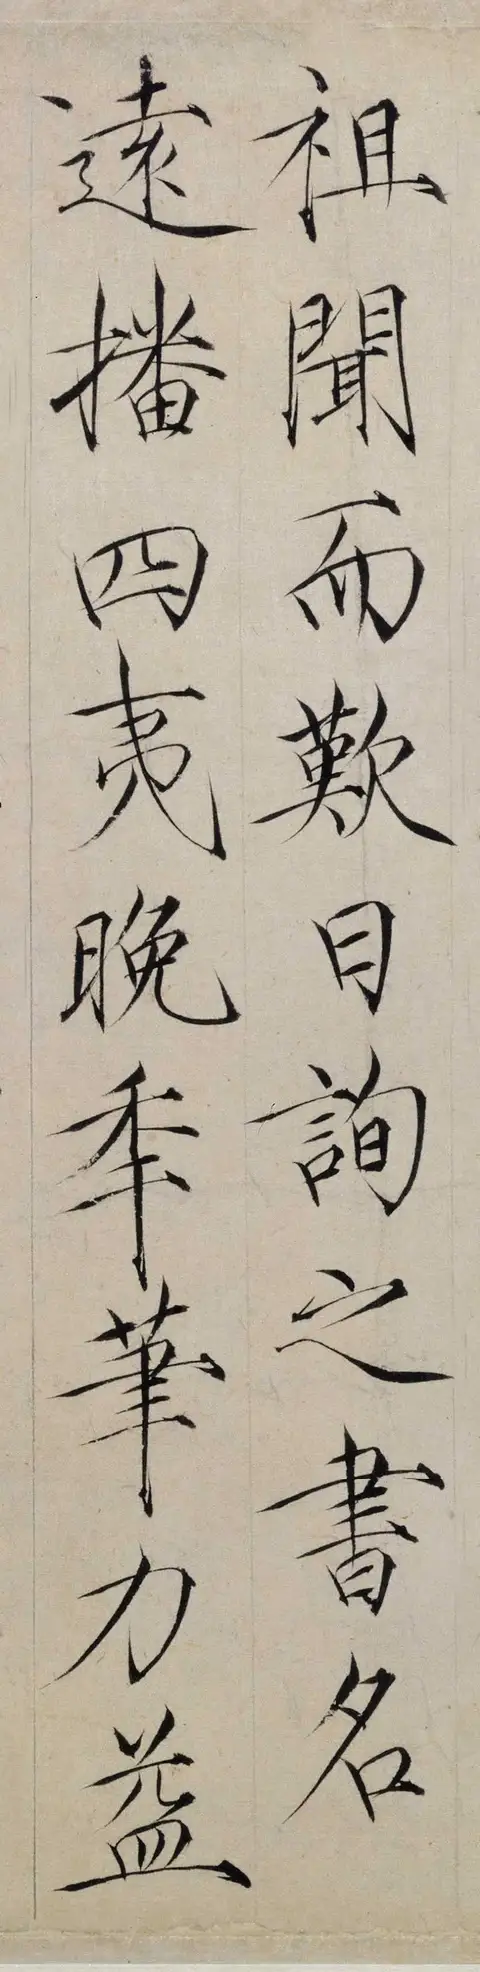 祖聞而歎日詢之書名
遠播四夷晚秊筆力益